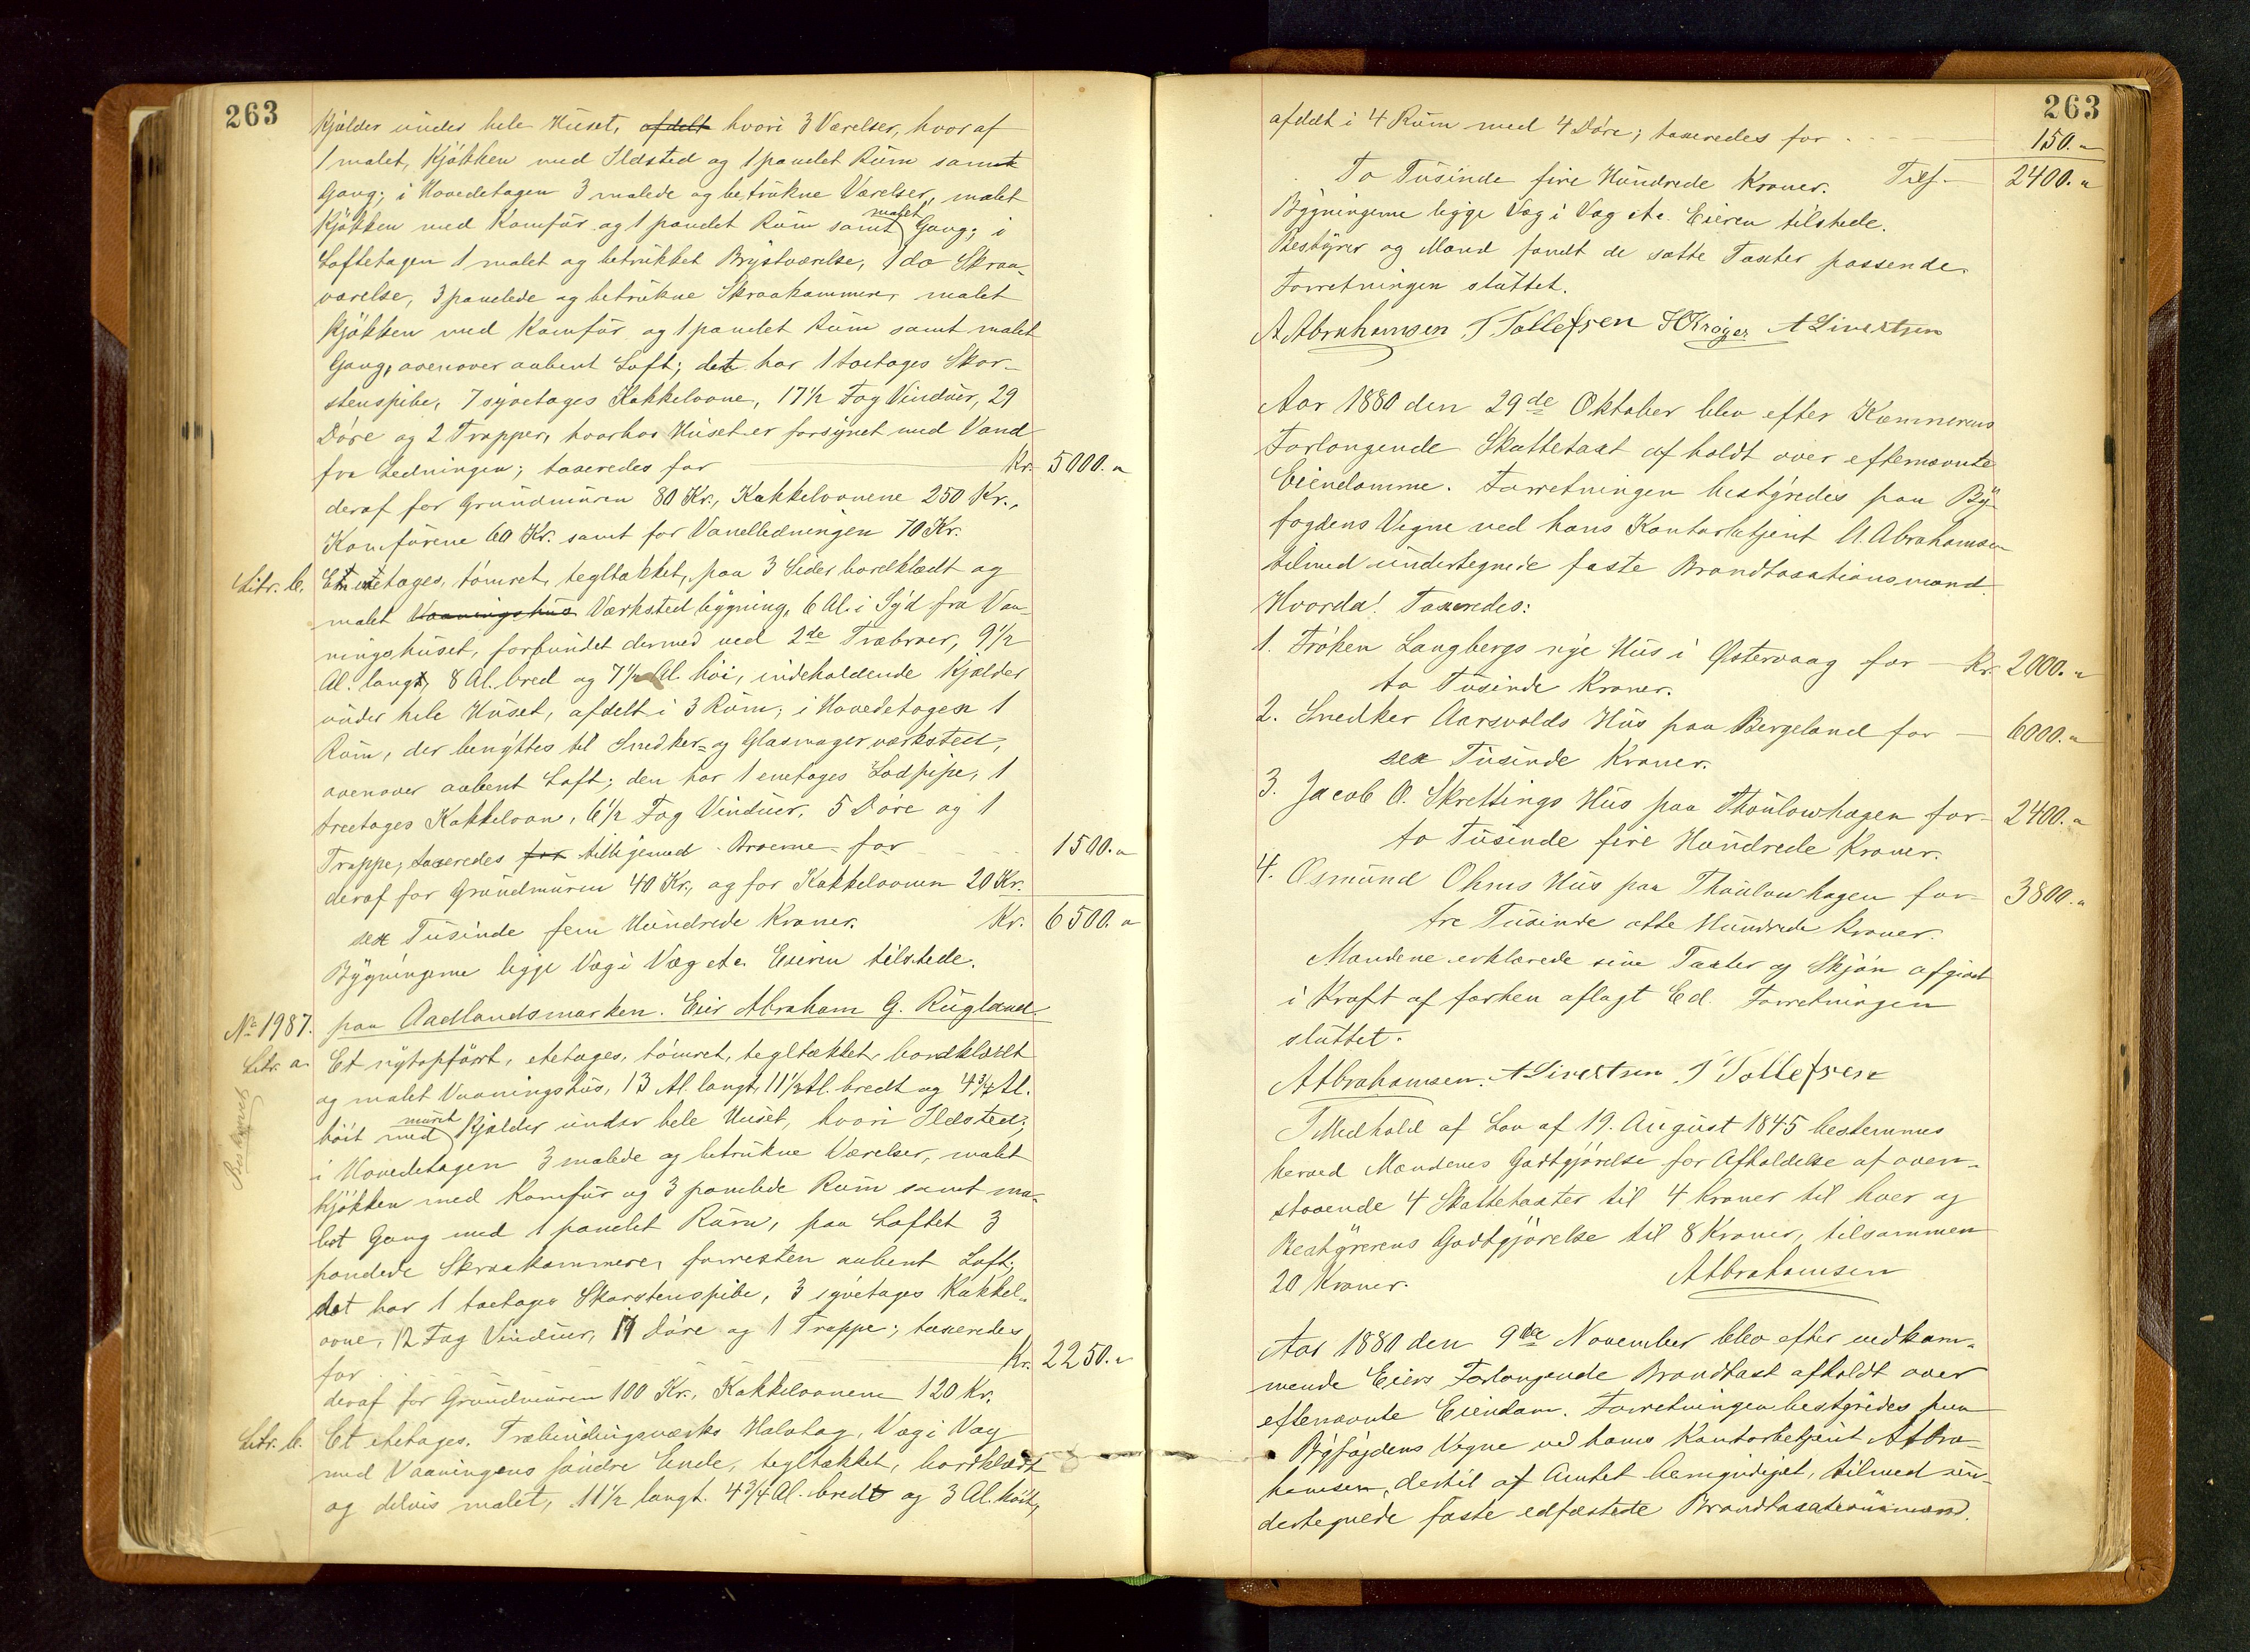 263
Kjælder under hele Huset, afdelt hvori 3 Værelser, hvoraf
1 malet, Kjøkken med Ildsted og 1 panelet Rum samt
Gang; i Hovedetagen 3 malede og betrukne Værelser, malet
Kjøkken med Komfur og 1 panelet Rum samt malet Gang; i
Loftetagen 1 malet og betrukket Brystværelse, 1 do Skraa-
værelse, 3 panelede og betrukne Skraakammere, malet
Kjøkken med Komfur og 1 panelet Rum samt malet
Gang, ovenover aabent Loft; det har 1 toetages Skor-
stenspibe, 7 syvetages Kakkelovne, 17 1/2 Fag Vinduer, 29
Døre og 2 Trapper, hvorhos Huset er forsynet med Vand
fra Ledningen; taxeredes for Kr. 5000.„
deraf for Grundmuren 80 Kr., Kakkelovnene 250 Kr.,
Komfurene 60 Kr. samt for Vandledningen 70 Kr.
Litr. b. En etetages, tømret, tegltækket, paa 3 Sider bordklædt og
malet Vaaningshus Værkstedbygning, 6 Al. i Syd fra Vaa-
ningshuset, forbundet dermed ved 2de Træbroer, 9 1/2
Al. langt, 8 Al. bred og 7 1/2 Al. høi, indeholdende Kjælder
under hele Huset, afdelt i 3 Rum; i Hovedetagen 1
Rum, der benyttes til Snedker- og Glasmagerværksted,
ovenover aabent Loft; den har 1 enetages Lodpipe, 1
treetages Kakkelovn, 6 1/2 Fag Vinduer, 5 Døre og 1
Trappe; taxeredes for tilligemed Broerne for 1500.„
deraf for Grundmuren 40 Kr., og for Kakkelovnen 20 Kr.
sex Tusinde fem Hundrede Kroner. Kr. 6500.„
Bygningerne ligge Væg i Væg etc. Eieren tilstede.
No 1987. paa Aadlandsmarken. Eier Abraham G. Rugland.
Litr. a. Et nytopført, etetages, tømret, tegltækket, bordklædt
og malet Vaaningshus, 13 Al. langt, 11 1/2 Al. bredt og 4 3/4 Al.
høit med muret Kjælder under hele Huset, hvori Ildsted;
i Hovedetagen 3 malede og betrukne Værelser, malet
Kjøkken med Komfur og 3 panelede Rum samt ma-
let Gang med 1 panelet Rum, paa Loftet 3
panelede Skraakammere, forresten aabent Loft;
det har 1 toetages Skorstenspibe, 3 syvetages Kakkel-
ovne, 12 Fag Vinduer, 19 Døre og 1 Trappe; taxeredes
for Kr. 2250.„
deraf for Grundmuren 100 Kr., Kakkelovnene 120 Kr.
Litr. b. Et etetages. Træbindingsværks Halvtag, Væg i Væg
med Vaaningens søndre Ende, tegltækket, bordklædt
og delvis malet, 11 1/2 langt. 4 3/4 Al. bredt og 3 Al. høit,
263
afdelt i 4 Rum med 4 Døre; taxeredes for 150.„
To Tusinde fire Hundrede Kroner. Tils. 2400.„
Bygningerne ligge Væg i Væg etc. Eieren tilstede.
Bestyrer og Mænd fandt de satte Taxter passende.
Forretningen sluttet.
A Abrahamsen T Tollefsen H Krøger A Sivertsen
Aar 1880 den 29de Oktober blev efter Kæmnerens
Forlangende Skattetaxt afholdt over efternævnte
Eiendomme. Forretningen bestyredes paa By-
fogdens Vegne ved hans Kontorbetjent A. Abrahamsen
tilmed undertegnede faste Brandtaxationsmænd.
Hvorda! Taxeredes:
1. Frøken Langbergs nye Hus i Østervaag for Kr. 2000.„
to Tusinde Kroner.
2. Snedker Aarsvolds Hus paa Bergeland for 6000.„
sex Tusinde Kroner.
3. Jacob A. Skrettings Hus paa Thoulowhagen for 2400.„
to Tusinde fire Hundrede Kroner.
4. Osmund Ohms Hus paa Thoulowhagen for 3800.„
tre Tusinde otte Hundrede Kroner.
Mændene erklærede sine Taxter og Skjøn afgivet
i Kraft af forhen aflagt Ed. Forretningen
sluttet.
A Abrahamsen. A Sivertsen T Tollefsen
I Medhold af Lov af 19. August 1845 bestemmes
herved Mændenes Godtgjørelse for Afholdelse af oven-
staaende 4 Skattetaxter til 4 Kroner til hver og
Bestyrerens Godtgjørelse til 8 Kroner, tilsammen
20 Kroner. A Abrahamsen
Aar 1880 den 9de November blev efter vedkom-
mende Eiers Forlangende Brandtaxt afholdt over
efternævnte Eiendom. Forretningen bestyredes paa
Byfogdens Vegne ved hans Kontorbetjent A Abra-
hamsen, dertil af Amtet bemyndiget, tilmed un-
dertegnede faste edfæstede Brandtaxationsmænd.